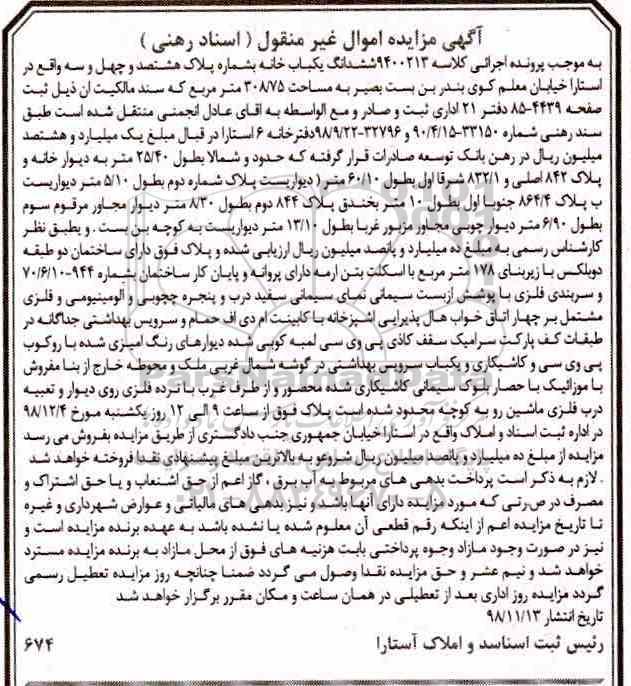 آگهی مزایده اموال غیر منقول ( اسناد رهنی )
به موجب پرونده اجرائی کلاسه ۹۴۰۰۲۱۳ششدانگ یکباب خانه بشماره پلاک هشتصد و چهل و سه واقع در
استارا خیابان معلم کوی بندر بن بست بصیر به مساحت ۳۰۸/۷۵ متر مربع که سند مالکیت ان ذیل ثبت
صفحه ۴۴۳۹-۸۵ دفتر ۲۱ اداری ثبت و صادر و مع الواسطه به اقای عادل انجمنی منتقل شده است طبق
سند رهنی شماره ۳۳۱۵۰-۹۰/۴/۱۵ و ۳۲۷۹۶-۹۸/۹/۲۲دفترخانه ۶ استارا در قبال مبلغ یک میلیارد و هشتصد
میلیون ریال در رهن بانک توسعه صادرات قرار گرفته که حدود و شمالا بطول ۲۵/۴۰ متر به دیوار خانه و
پلاک ۸۴۲ اصلی و ۸۳۲/۱ شرقا اول بطول ۶۰/۱۰ متر ( دیواریست پلاک شماره دوم بطول ۵/۱۰ متر دیواریست
ب پلاک ۸۶۴/۴ جنوبا اول بطول ۱۰ متر بخندق پلاک ۸۴۴ دوم بطول ۸/۳۰ متر دیوار مجاور مرقوم سوم
بطول ۶/۹۰ متر دیوار چوبی مجاور مزبور غربا بطول ۱۳/۱۰ متر دیواریست به کوچه بن بست . و بطبق نظر
کارشناس رسمی به مبلغ ده میلیارد و پانصد میلیون ریال ارزیابی شده و پلاک فوق دارای ساختمان دو طبقه
دوبلکس با زیربنای ۱۷۸ متر مربع با اسکلت بتن ارمه دارای پروانه و پایان کار ساختمان بشماره ۹۴۴-۷۰/۶/۱۰
و سربندی فلزی با پوشش ازبست سیمانی نمای سیمانی سفید درب و پنجره چچوبی و آلومینیومی و فلزی
مشتمل بر چهار اتاق خواب هال پذیرایی اشپزخانه با کابینت ام دی اف حمام و سرویس بهداشتی جداگانه در
طبقات کف پارکت سرامیک سقف کاذی پی وی سی لمبه کوبی شده دیوارهای رنگ امیزی شده با روکوب
پی وی سی و کاشیکاری و یکباب سرویس بهداشتی در گوشه شمال غربی ملک و محوطه خارج از بنا مفروش
با موزائیک با حصار بلوک سیمانی کاشیکاری شده محصور و از طرف غرب با نرده فلزی روی دیوار و تعبیه
درب فلزی ماشین رو به کوچه محدود شده است پلاک فوق از ساعت ۹ الی ۱۲ روز یکشنبه مورخ ۹۸/۱۲/۴
در اداره ثبت اسناد و املاک واقع در استارا خیابان جمهوری جنب دادگستری از طریق مزایده بفروش می رسد
مزایده از مبلغ ده میلیارد و پانصد میلیون ریال شروع و به بالاترین مبلغ پیشنهادی نقدا فروخته خواهد شد
. لازم به ذکر است پرداخت بدهی های مربوط به آب برق ، گاز اعم از حق اشتعاب و یا حق اشتراک و
مصرف در ص‌رتی که مورد مزایده دارای آنها باشد و نیز بدهی های مالیاتی و عوارض شهرداری و غیره
تا تاریخ مزایده اعم از اینکه رقم قطعی آن معلوم شده یا نشده باشد به عهده برنده مزایده است و
نیز در صورت وجود مازاد وجوه پرداختی بابت هزنیه های فوق از محل مازاد به برنده مزایده مسترد
خواهد شد و نیم عشر و حق مزایده نقدا وصول می گردد ضمنا چنانچه روز مزایده تعطیل رسمی
گردد مزایده روز اداری بعد از تعطیلی در همان ساعت و مکان مقرر برگزار خواهد شد
تاریخ انتشار ۹۸/۱۱/۱۳
رئیس ثبت اسناسد و املاک آستارا ۶۷۴